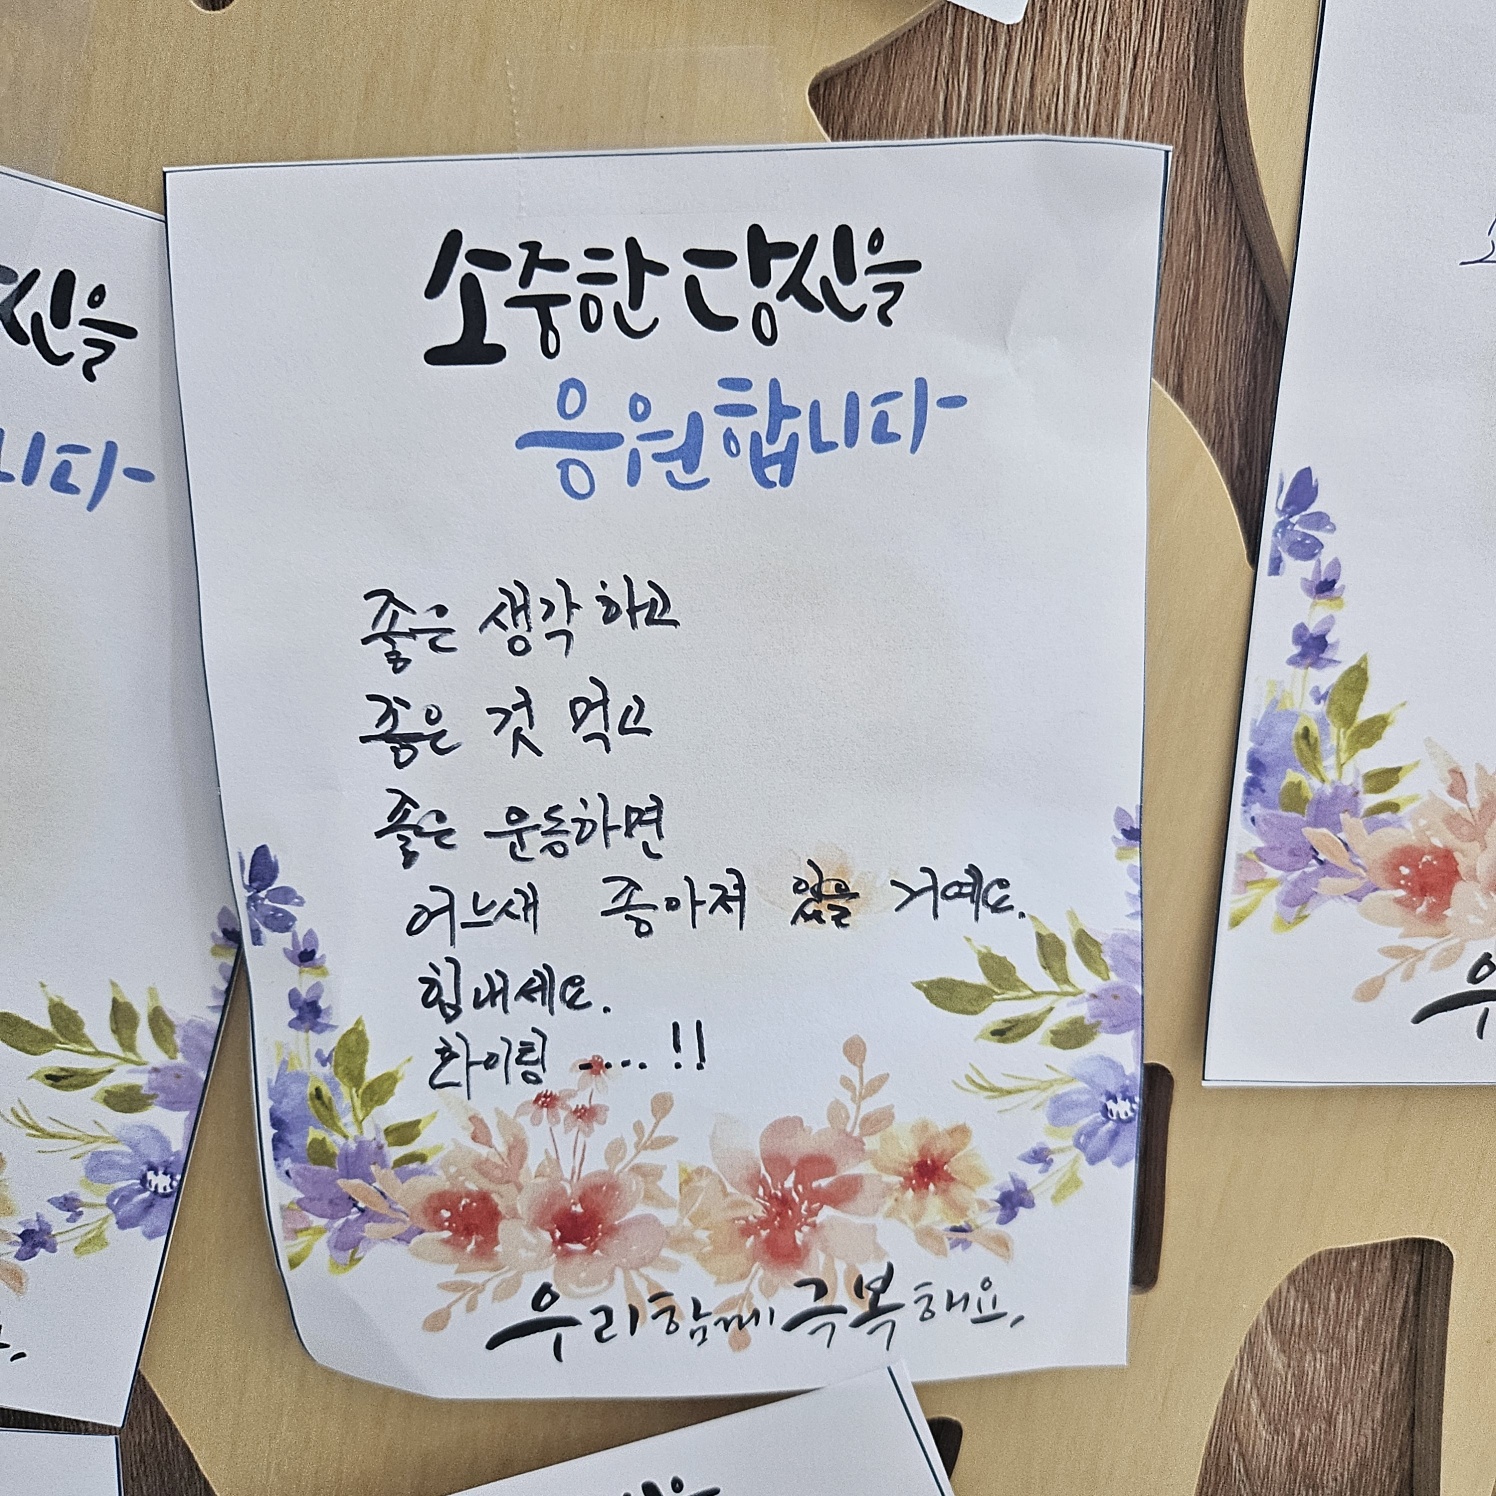 소중한 당신을
응원합니다
좋은 생각하고
좋은 것 먹고
좋은 운동하면
어느새 좋아져 있을 거예요.
힘내세요.
화이팅 ....!!
우리함께극복해요.
신을
니다